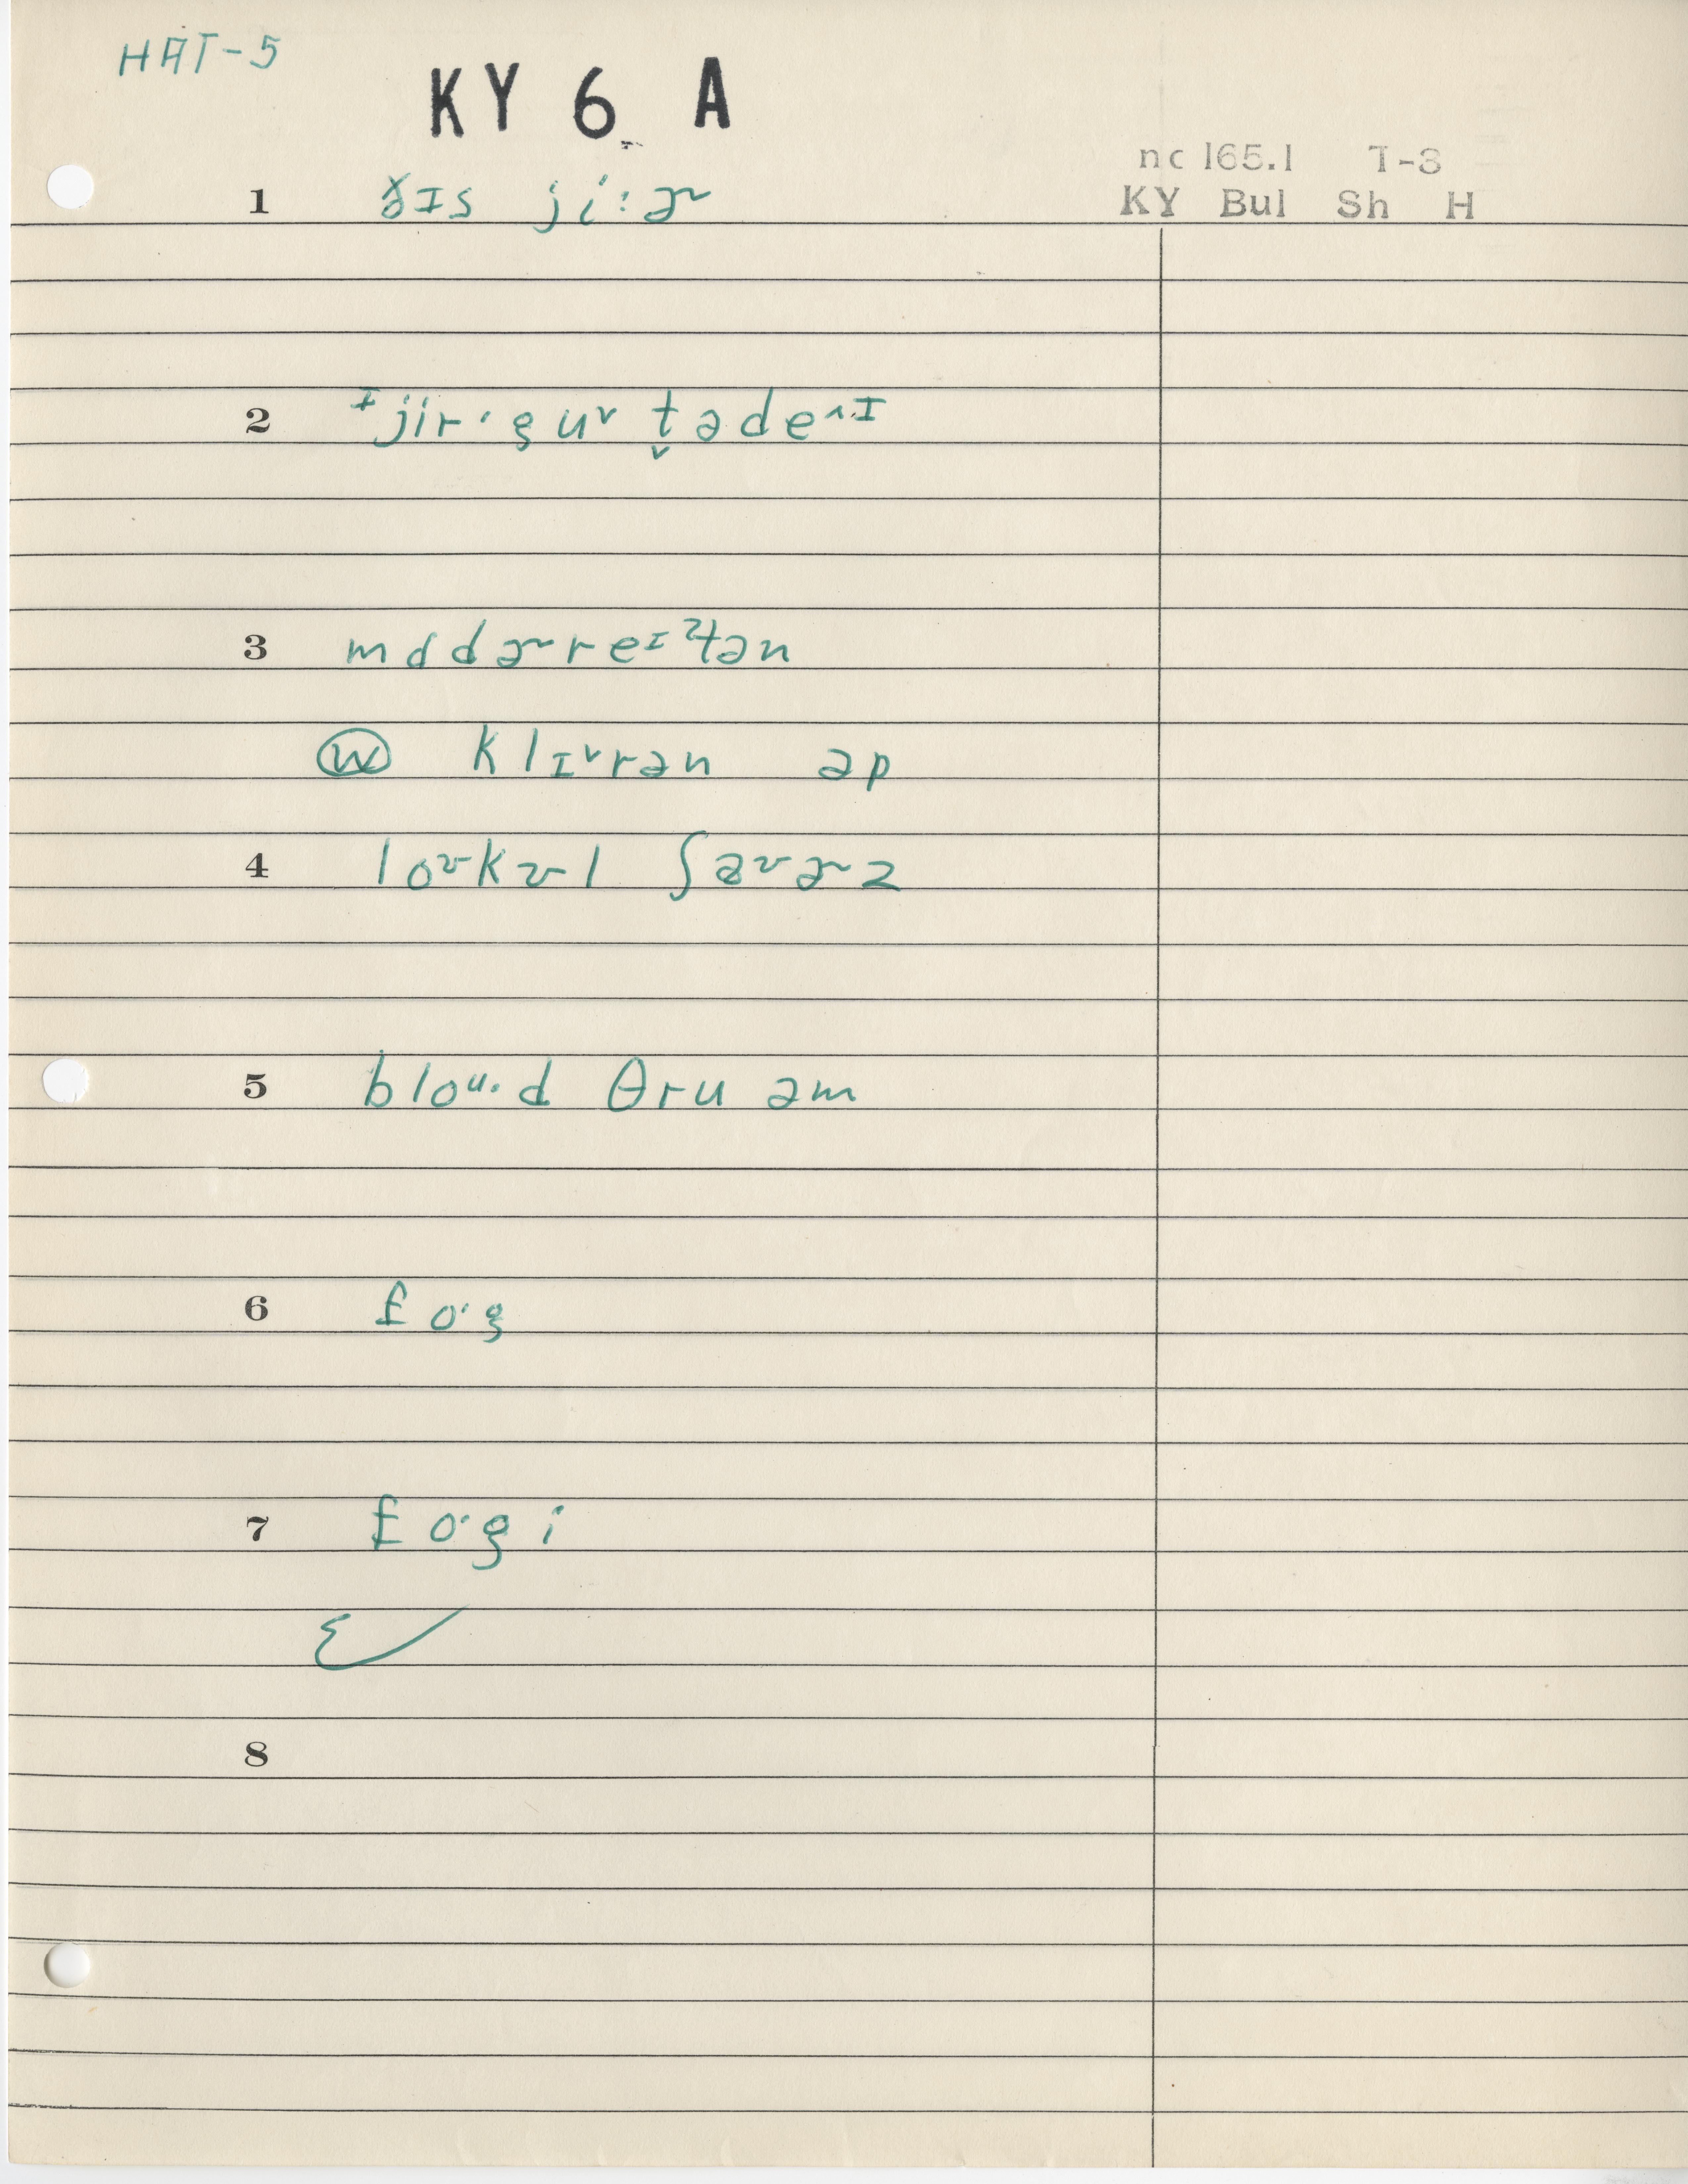 HAT-5
KY 6 A
nc 165.1 T-3
KY Bul Sh H
1 ðɪs ji:ɚ
2 ᶦjirˑguᵛ t̬əde^ɪ
3 mɑdɚreᶦʔtən
ⓦ klɪᵛrən əp
4 loᴠkᴠl ʃaᴠɚz
5 bloᵘˑd θru əm
6 fɑˑg
7 fɑˑgi
8